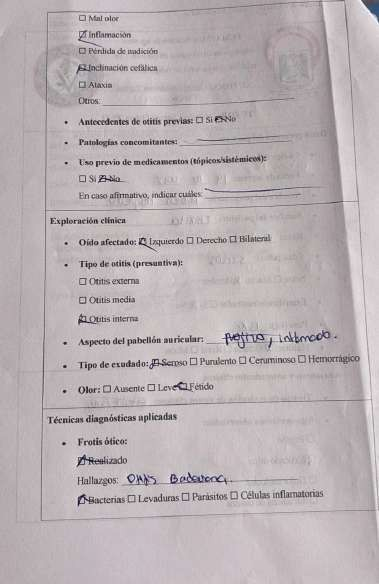 ☐ Mal olor
☑ Inflamación
☐ Pérdida de audición
☑ Inclinación cefálica
☐ Ataxia
Otros:
• Antecedentes de otitis previas: ☐ Si ☑ No
• Patologías concomitantes:
• Uso previo de medicamentos (tópicos/sistémicos):
☐ Si ☑ No
En caso afirmativo, indicar cuáles:
Exploración clínica
• Oído afectado: ☑ Izquierdo ☐ Derecho ☐ Bilateral
• Tipo de otitis (presuntiva):
☐ Otitis externa
☐ Otitis media
☑ Otitis interna
• Aspecto del pabellón auricular:
• Tipo de exudado: ☑ Seroso ☐ Purulento ☐ Ceruminoso ☐ Hemorrágico
• Olor: ☐ Ausente ☐ Leve ☑ Fétido
Técnicas diagnósticas aplicadas
• Frotis ótico:
☑ Realizado
Hallazgos:
☑ Bacterias ☐ Levaduras ☐ Parásitos ☐ Células inflamatorias